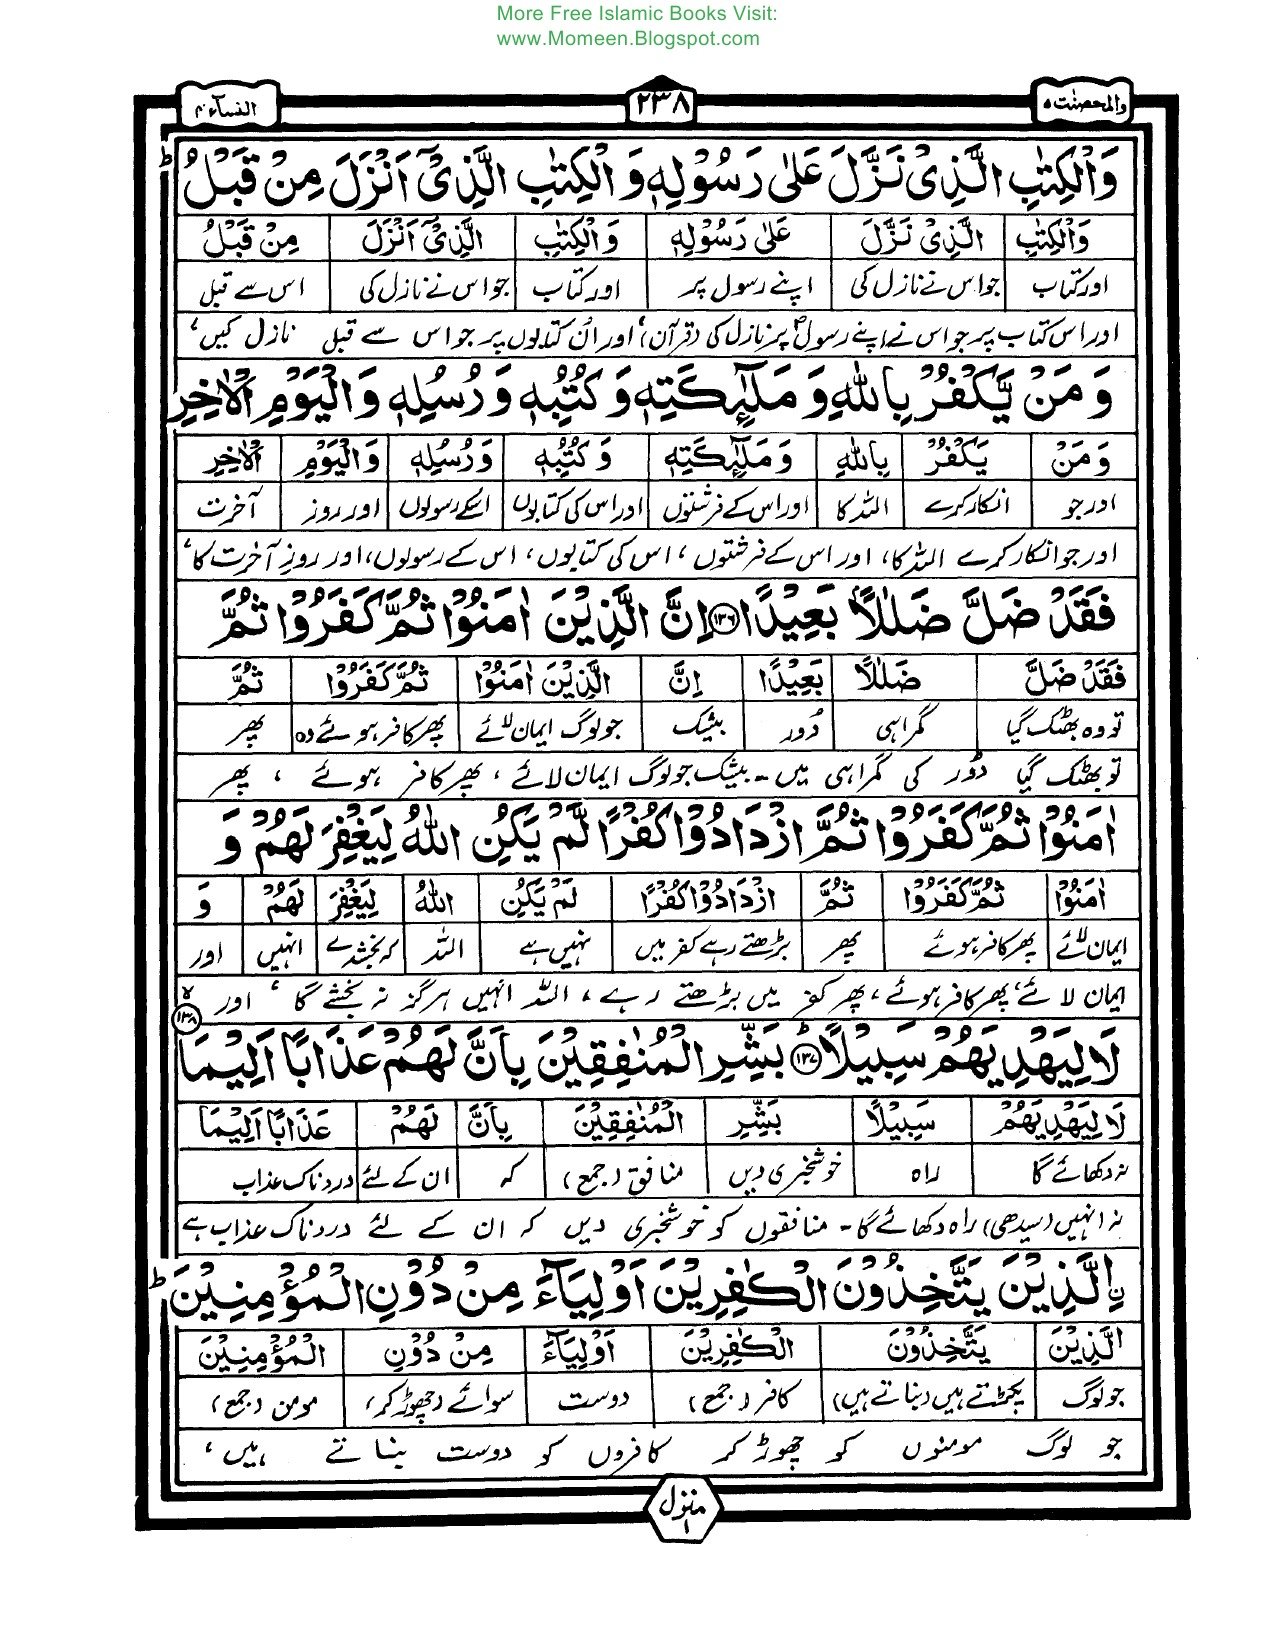 More Free Islamic Books Visit:
www.Momeen.Blogspot.com
والمحصنٰت ٥ ٢٣٨ النساء ٤
وَالْكِتٰبِ الَّذِیْ نَزَّلَ عَلٰی رَسُوْلِهٖ وَ الْكِتٰبِ الَّذِیْۤ اَنْزَلَ مِنْ قَبْلُ ؕ
وَالْكِتٰبِ الَّذِیْ نَزَّلَ عَلٰی رَسُوْلِهٖ وَالْكِتٰبِ الَّذِیْۤ اَنْزَلَ مِنْ قَبْلُ
اور کتاب جو اس نے نازل کی اپنے رسول پر اور کتاب جو اس نے نازل کی اس سے قبل
اور اس کتاب پر جو اس نے اپنے رسولؐ پر نازل کی (قرآن) اور اُن کتابوں پر جو اس سے قبل نازل کیں،
وَ مَنْ یَّكْفُرْ بِاللّٰهِ وَ مَلٰٓئِكَتِهٖ وَ كُتُبِهٖ وَ رُسُلِهٖ وَ الْیَوْمِ الْاٰخِرِ
وَ مَنْ یَكْفُرْ بِاللّٰهِ وَ مَلٰٓئِكَتِهٖ وَ كُتُبِهٖ وَ رُسُلِهٖ وَ الْیَوْمِ الْاٰخِرِ
اور جو انکار کرے اللہ کا اور اس کے فرشتوں اور اس کی کتابوں اسکے رسولوں اور روز آخرت
اور جو انکار کرے اللہ کا، اور اس کے فرشتوں، اس کی کتابوں، اس کے رسولوں، اور روزِ آخرت کا،
فَقَدْ ضَلَّ ضَلٰلًۢا بَعِیْدًا ﴿١٣٦﴾ اِنَّ الَّذِیْنَ اٰمَنُوْا ثُمَّ كَفَرُوْا ثُمَّ
فَقَدْ ضَلَّ ضَلٰلًا بَعِیْدًا اِنَّ الَّذِیْنَ اٰمَنُوْا ثُمَّ كَفَرُوْا ثُمَّ
تو وہ بھٹک گیا گمراہی دُور بیشک جو لوگ ایمان لائے پھر کافر ہوئے وہ پھر
تو بھٹک گیا دُور کی گمراہی میں۔ بیشک جو لوگ ایمان لائے، پھر کافر ہوئے، پھر
اٰمَنُوْا ثُمَّ كَفَرُوْا ثُمَّ ازْدَادُوْا كُفْرًا لَّمْ یَكُنِ اللّٰهُ لِیَغْفِرَ لَهُمْ وَ
اٰمَنُوْا ثُمَّ كَفَرُوْا ثُمَّ ازْدَادُوْا كُفْرًا لَمْ یَكُنِ اللّٰهُ لِیَغْفِرَ لَهُمْ وَ
ایمان لائے پھر کافر ہوئے پھر بڑھتے رہے کفر میں نہیں ہے اللہ کہ بخشدے انہیں اور
ایمان لائے، پھر کافر ہوئے، پھر کفر میں بڑھتے رہے، اللہ انہیں ہرگز نہ بخشے گا، اور
لَا لِیَهْدِیَهُمْ سَبِیْلًا ؕ﴿١٣٧﴾ بَشِّرِ الْمُنٰفِقِیْنَ بِاَنَّ لَهُمْ عَذَابًا اَلِیْمَا ۙ﴿١٣٨﴾
لَا لِیَهْدِیَهُمْ سَبِیْلًا بَشِّرِ الْمُنٰفِقِیْنَ بِاَنَّ لَهُمْ عَذَابًا اَلِیْمَا
نہ دکھائے گا راہ خوشخبری دیں منافق (جمع) کہ ان کے لئے دردناک عذاب
نہ انہیں (سیدھی) راہ دکھائے گا۔ منافقوں کو خوشخبری دیں کہ ان کے لئے دردناک عذاب ہے
ِ۟الَّذِیْنَ یَتَّخِذُوْنَ الْكٰفِرِیْنَ اَوْلِیَآءَ مِنْ دُوْنِ الْمُؤْمِنِیْنَ ؕ
الَّذِیْنَ یَتَّخِذُوْنَ الْكٰفِرِیْنَ اَوْلِیَآءَ مِنْ دُوْنِ الْمُؤْمِنِیْنَ
جو لوگ پکڑتے ہیں (بناتے ہیں) کافر (جمع) دوست سوائے (چھوڑ کر) مومن (جمع)
جو لوگ مومنوں کو چھوڑ کر کافروں کو دوست بناتے ہیں،
منزل ١